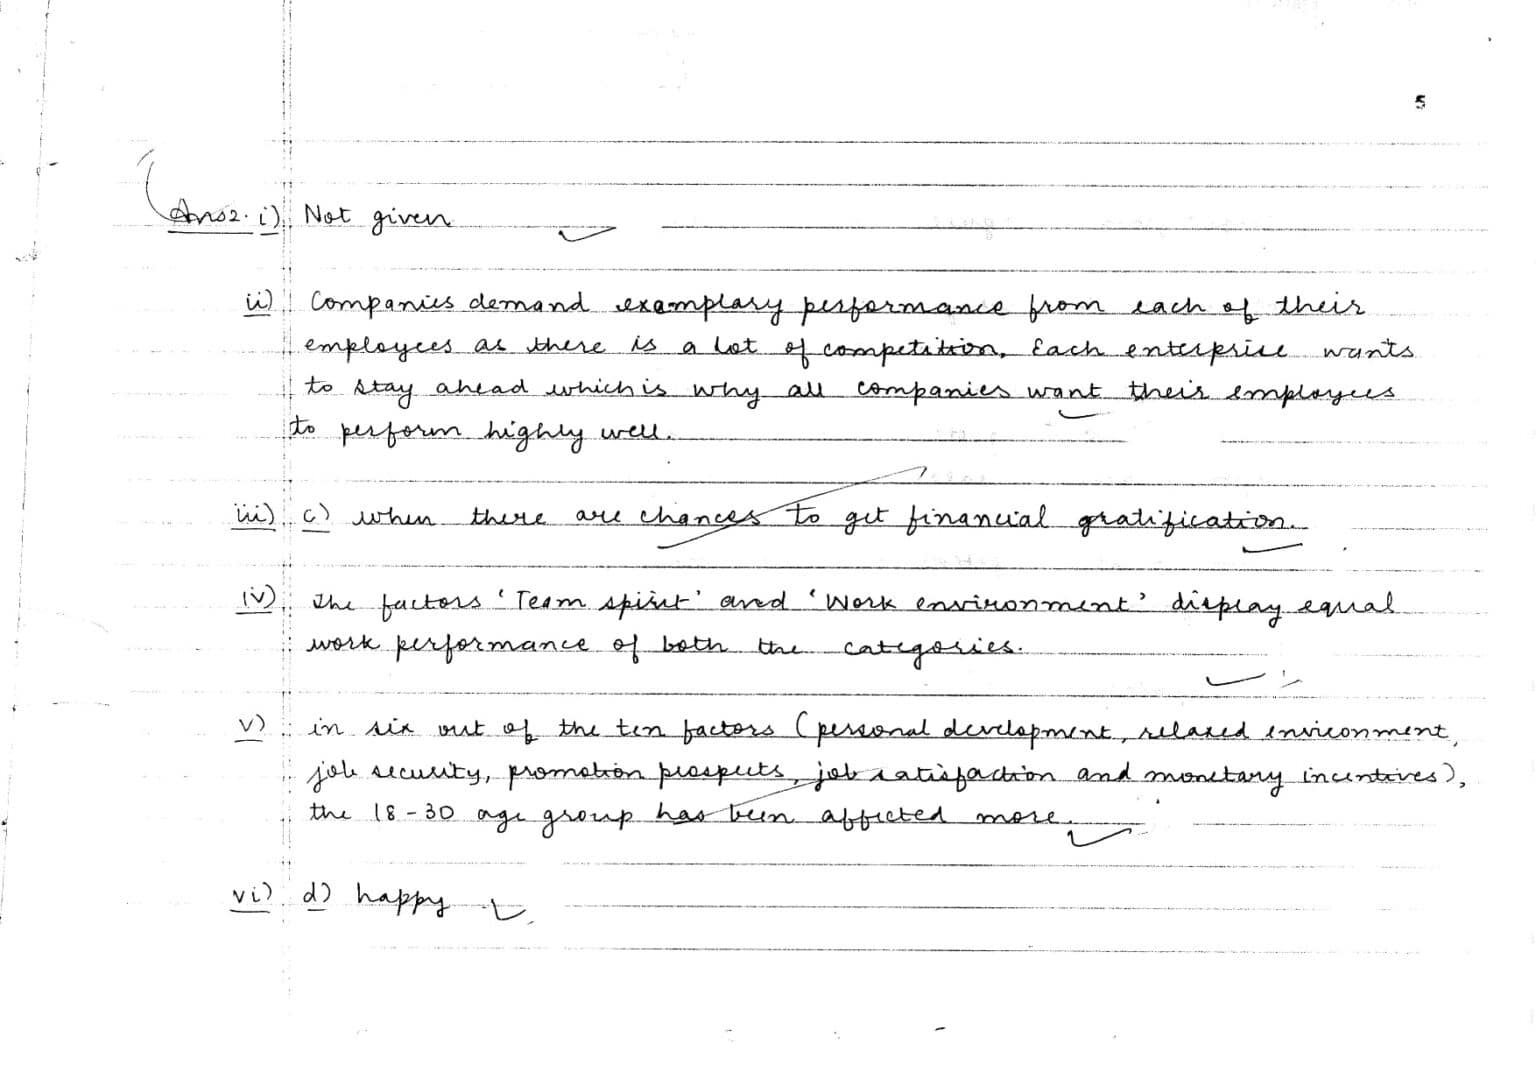 5
Ans2. i) Not given
ii) Companies demand examplary performance from each of their
employees as there is a lot of competition. Each enterprise wants
to stay ahead which is why all companies want their employees
to perform highly well.
iii) c) when there are chances to get financial gratification.
iv) The factors 'Team spirit' and 'Work environment' display equal
work performance of both the categories.
v) in six out of the ten factors (personal development, relaxed environment,
job security, promotion prospects, job satisfaction and monetary incentives),
the 18-30 age group has been affected more.
vi) d) happy